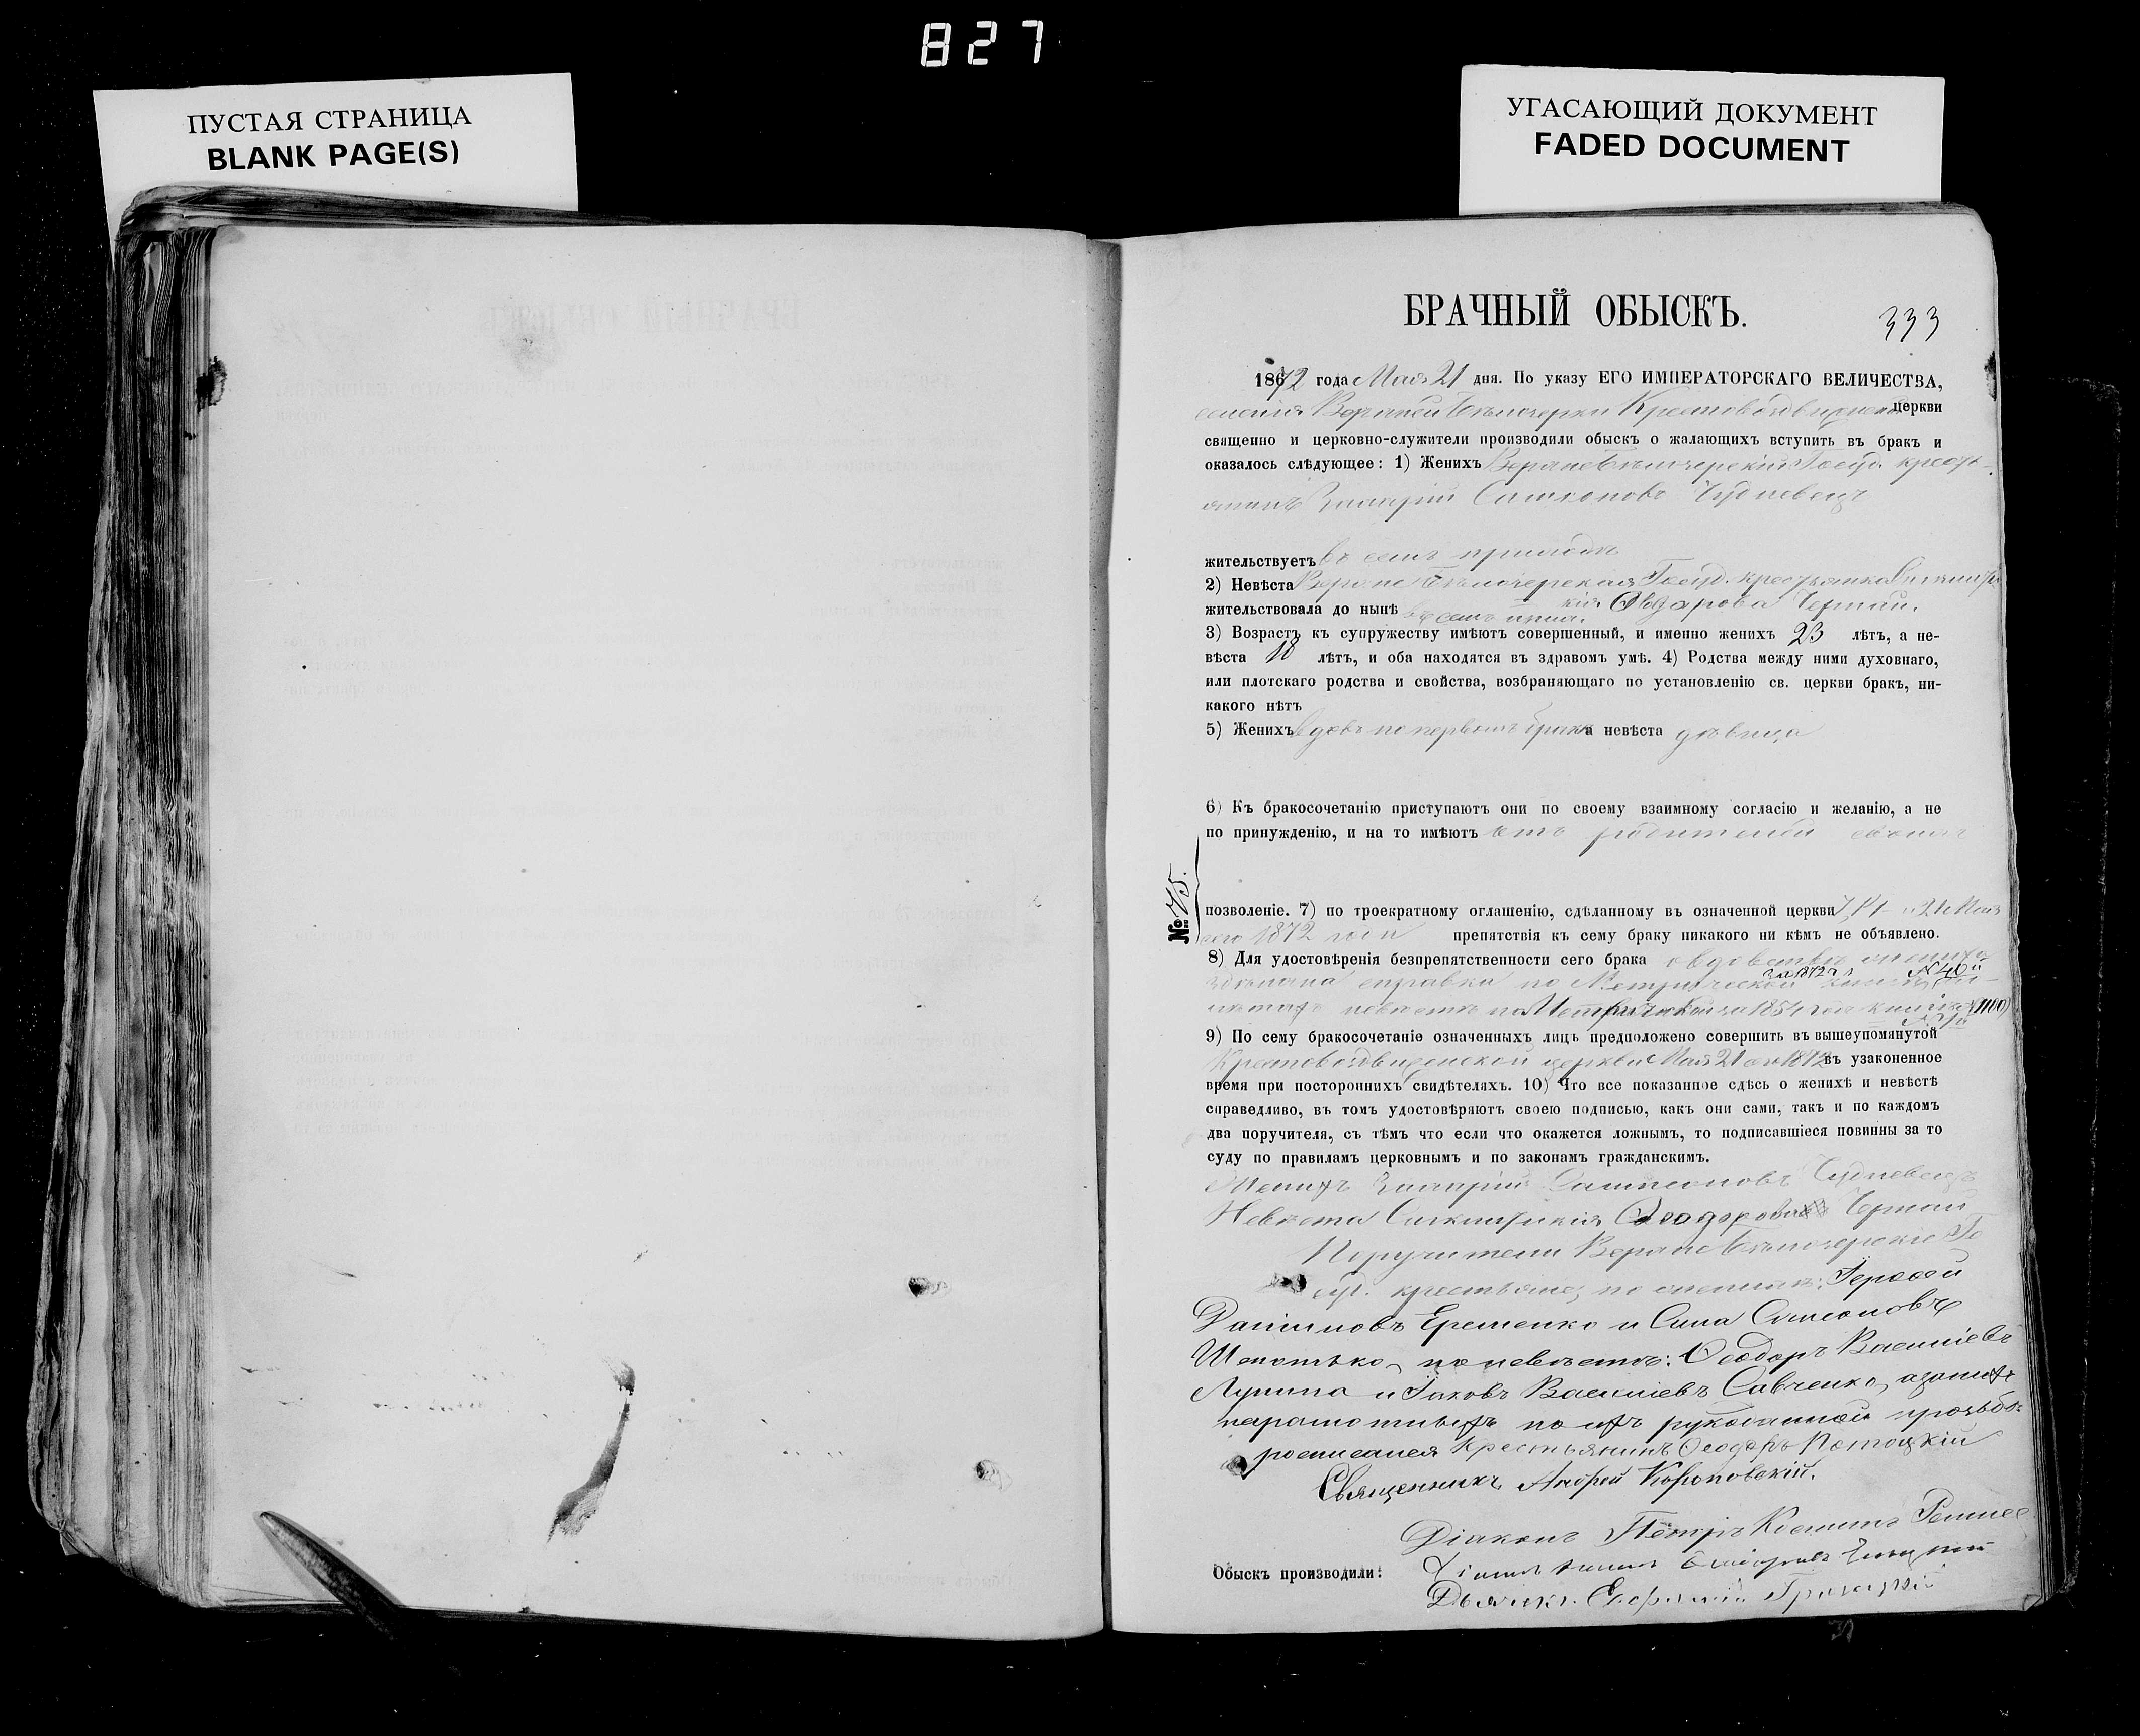 827
ПУСТАЯ СТРАНИЦА
BLANK PAGE(S)
УГАСАЮЩИЙ ДОКУМЕНТ
FADED DOCUMENT
БРАЧНЫЙ ОБЫСКЪ.
333
1872 года Мая 21 дня. По указу ЕГО ИМПЕРАТОРСКАГО ВЕЛИЧЕСТВА,
селенія Верхней Бѣлозерки Крестовоздвиженской церкви
священно и церковно-служители производили обыскъ о жалающихъ вступить въ бракъ и
оказалось слѣдующее: 1) Женихъ Верхнебѣлозерскій Госуд. кресть-
янинъ Сампсоновъ Чудновецъ
жительствуетъ въ семъ приходѣ
2) Невѣста Верхнебѣлозерская Госуд. крестьянка
жительствовала до нынѣ въ семъ Ѳеодорова Черной.
3) Возрастъ къ супружеству имѣютъ совершенный, и именно женихъ 23 лѣтъ, а не-
вѣста 18 лѣтъ, и оба находятся въ здравомъ умѣ. 4) Родства между ними духовнаго,
или плотскаго родства и свойства, возбраняющаго по установленію св. церкви бракъ, ни-
какого нѣтъ
5) Женихъ вдовъ по первомъ бракѣ а невѣста дѣвица
6) Къ бракосочетанію приступаютъ они по своему взаимному согласію и желанію, а не
по принужденію, и на то имѣютъ отъ родителей своихъ
№ 75.
позволеніе. 7) по троекратному оглашенію, сдѣланному въ означенной церкви и 21 Мая
сего 1872 года препятствія къ сему браку никакого ни кѣмъ не объявлено.
8) Для удостовѣренія безпрепятственности сего брака о вдовствѣ жениха
сдѣлана справка по Метрической за 1872 г. № 40й
лѣтахъ невѣсты по Метрической за 1854
9) По сему бракосочетаніе означенныхъ лицъ предположено совершить въ вышеупомянутой
Крестовоздвиженской церкви Мая 21 дня 1872 въ узаконенное
время при постороннихъ свидѣтеляхъ. 10) Что все показанное сдѣсь о женихѣ и невѣстѣ
справедливо, въ томъ удостовѣряютъ своею подписью, какъ они сами, такъ и по каждомъ
два поручителя, съ тѣмъ что если что окажется ложнымъ, то подписавшіеся повинны за то
суду по правиламъ церковнымъ и по законамъ гражданскимъ.
Женихъ Сампсоновъ Чудновецъ
Невѣста Ѳеодорова Черной
Поручители Верхнебѣлозерскіе Го
суд. крестьяне, по женихѣ:
Даниловъ Еременко и Сила Сумсоновъ
Шепотько, по невѣстѣ: Ѳеодоръ Василіевъ
Лупина и Іаковъ Василіевъ Савченко, а за нихъ
неграмотныхъ по ихъ рукоданной прозьбѣ
росписался Крестьянинъ Ѳеодоръ Потоцкій
Священникъ Андрей Короповскій.
Діаконъ Петръ Косьминъ
Обыскъ производили:
Дьячекъ